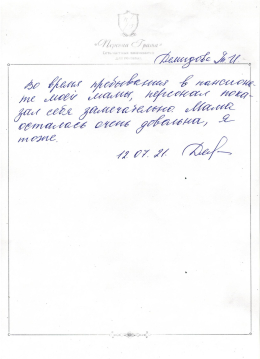 Демидова Т И
Во время пребывания в пансиона-
те моей мамы, персонал пока-
зал себя замечательно Мама
осталась очень довольна, я
тоже.
12 07. 21.